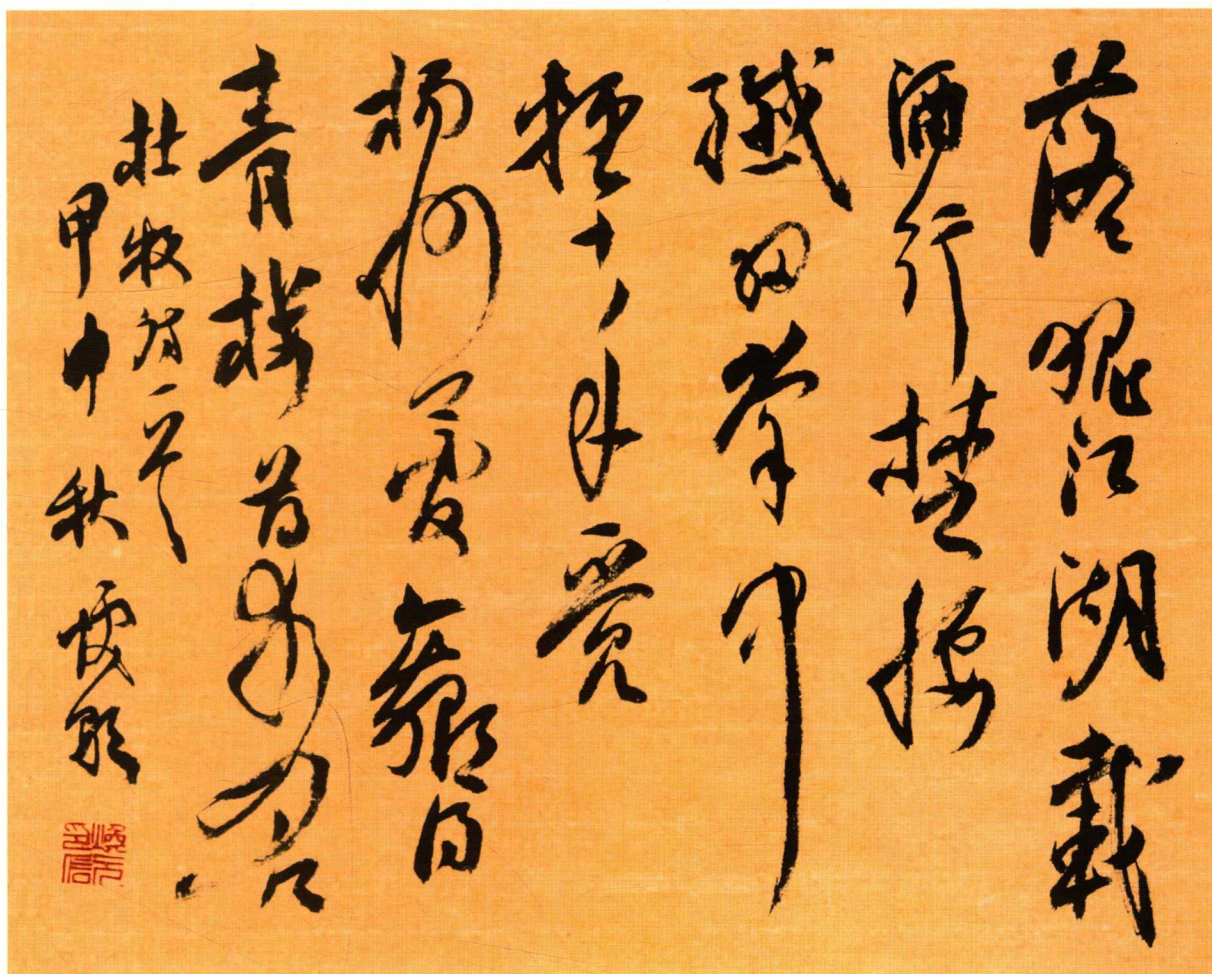 落魄江湖載
酒行楚腰
纖細掌中
輕十年一覺
揚州夢贏得
青樓薄倖名
杜牧詩一首
甲申秋